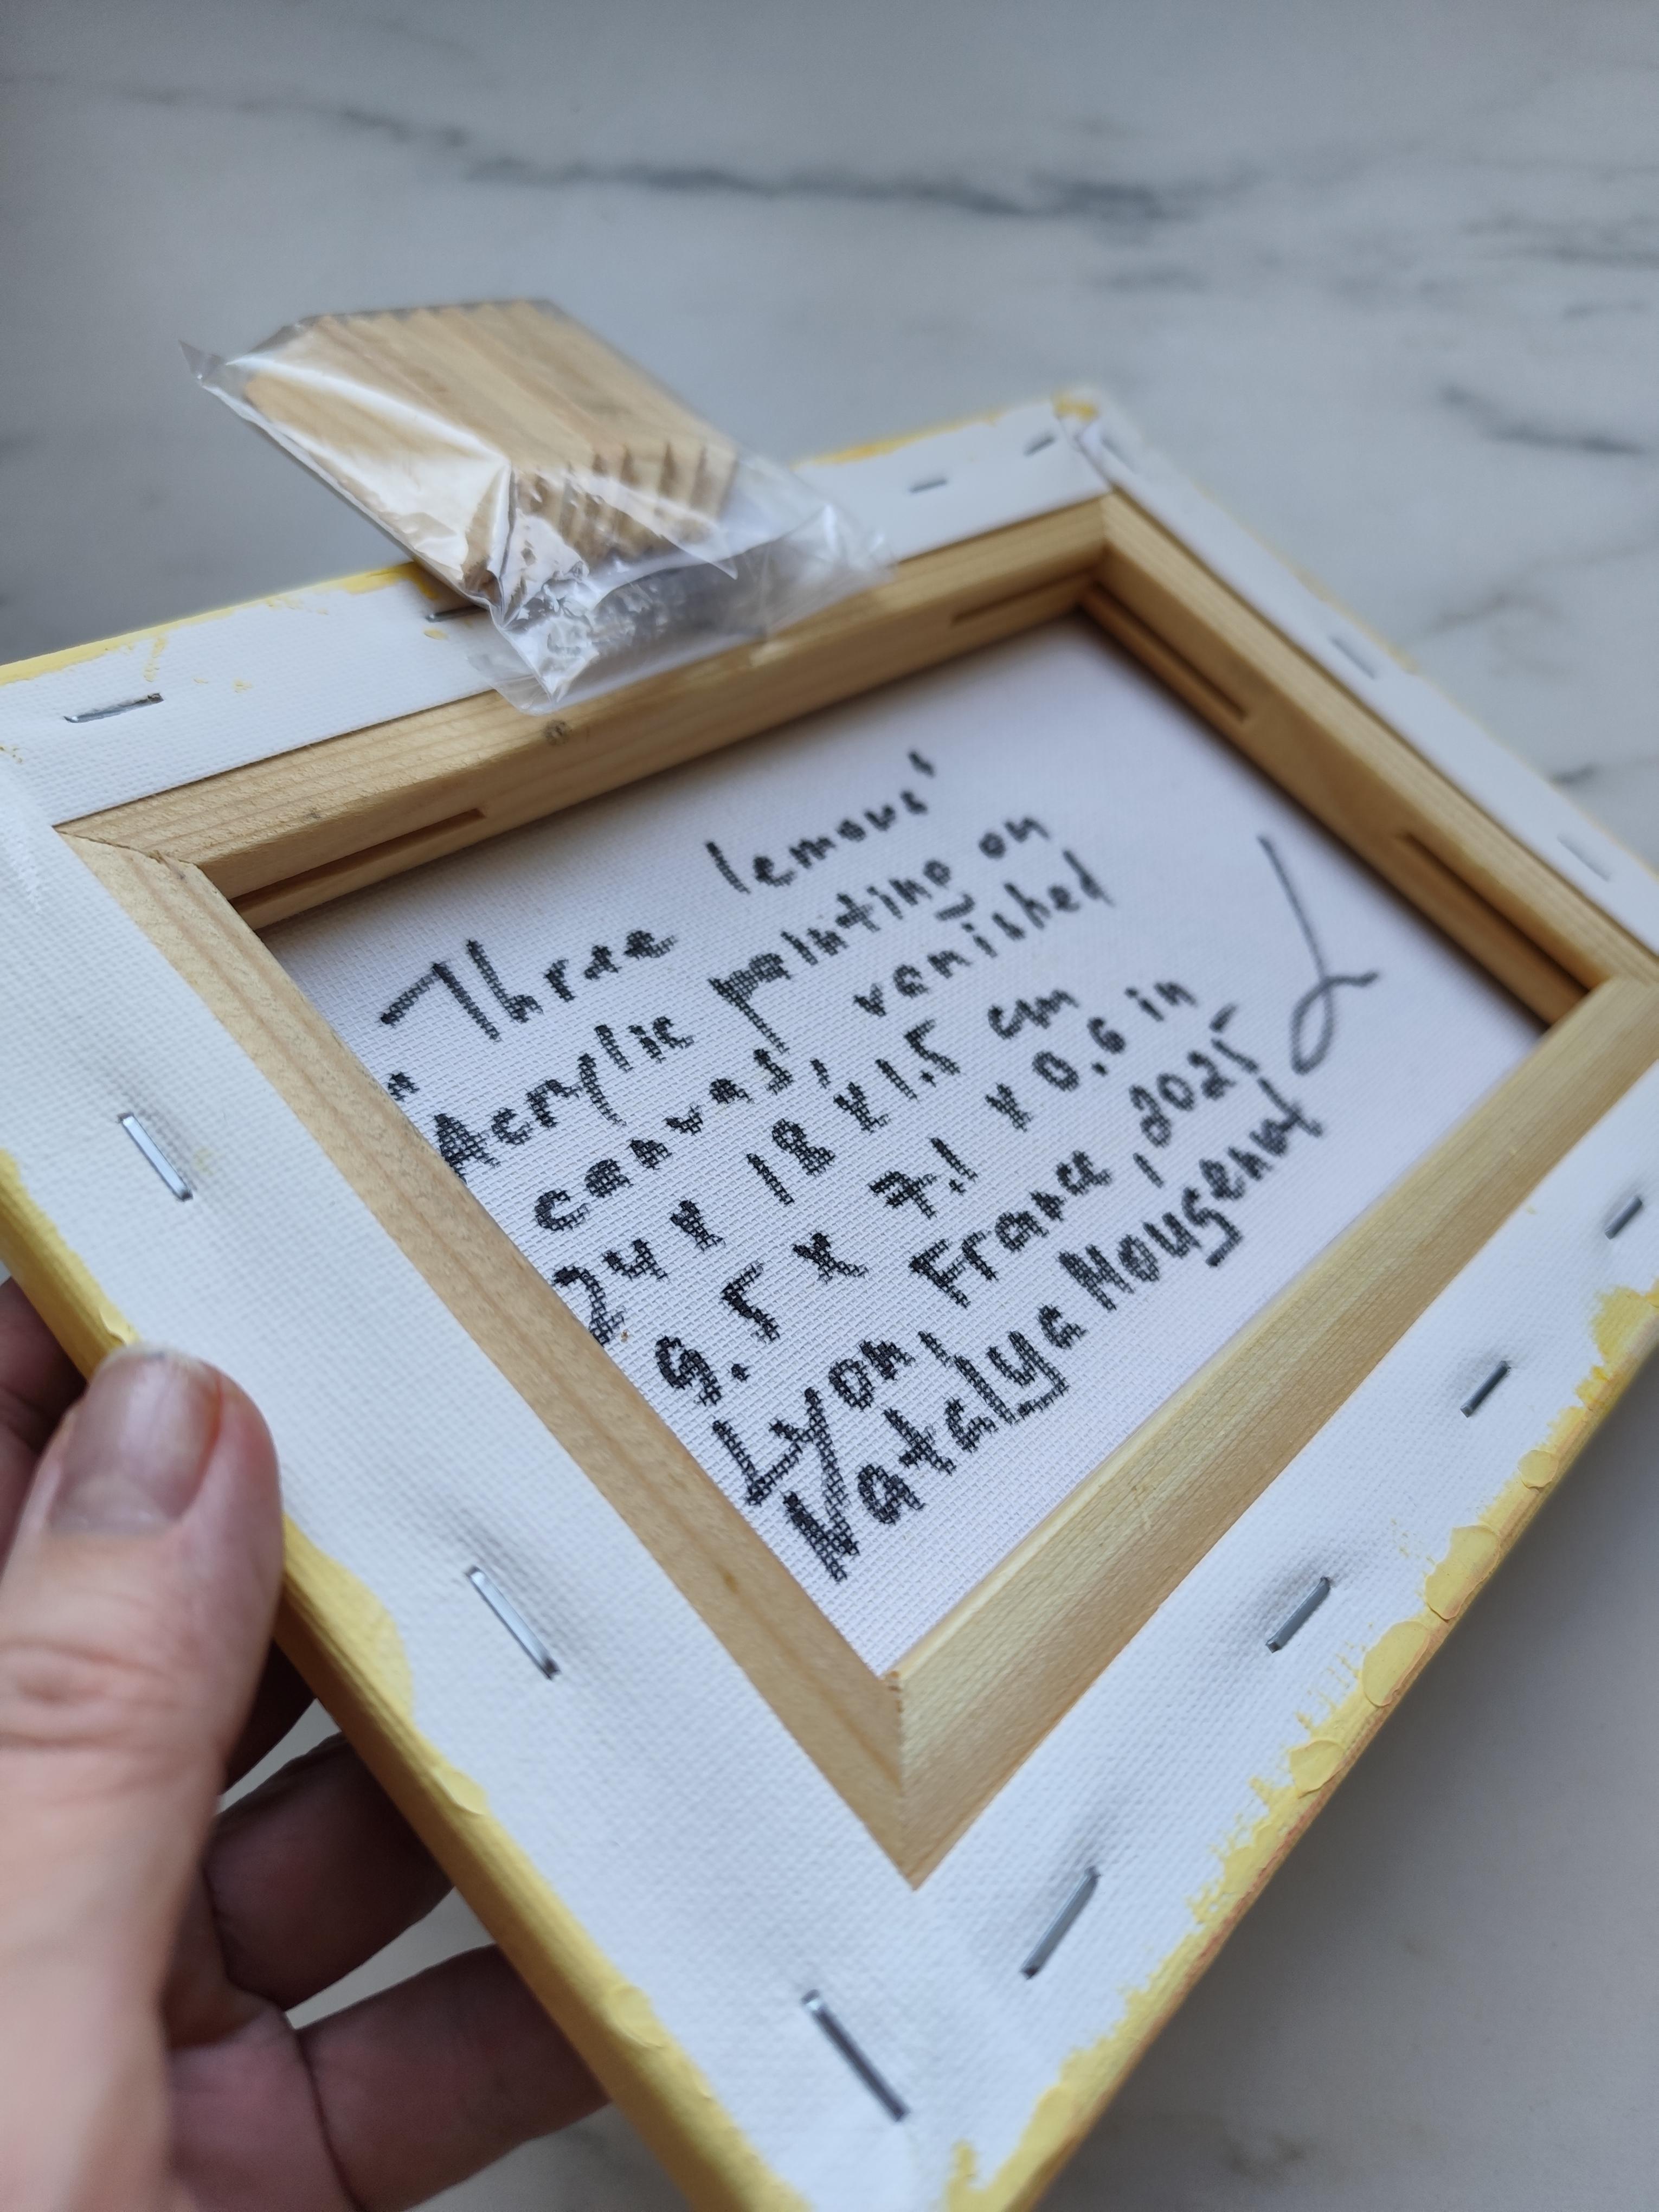 "Three lemons"
Acrylic painting on
canvas, varnished
24 x 18 x 1.5 cm
9.5 x 7.1 x 0.6 in
Lyon, France, 2025
Natalya Mougenot